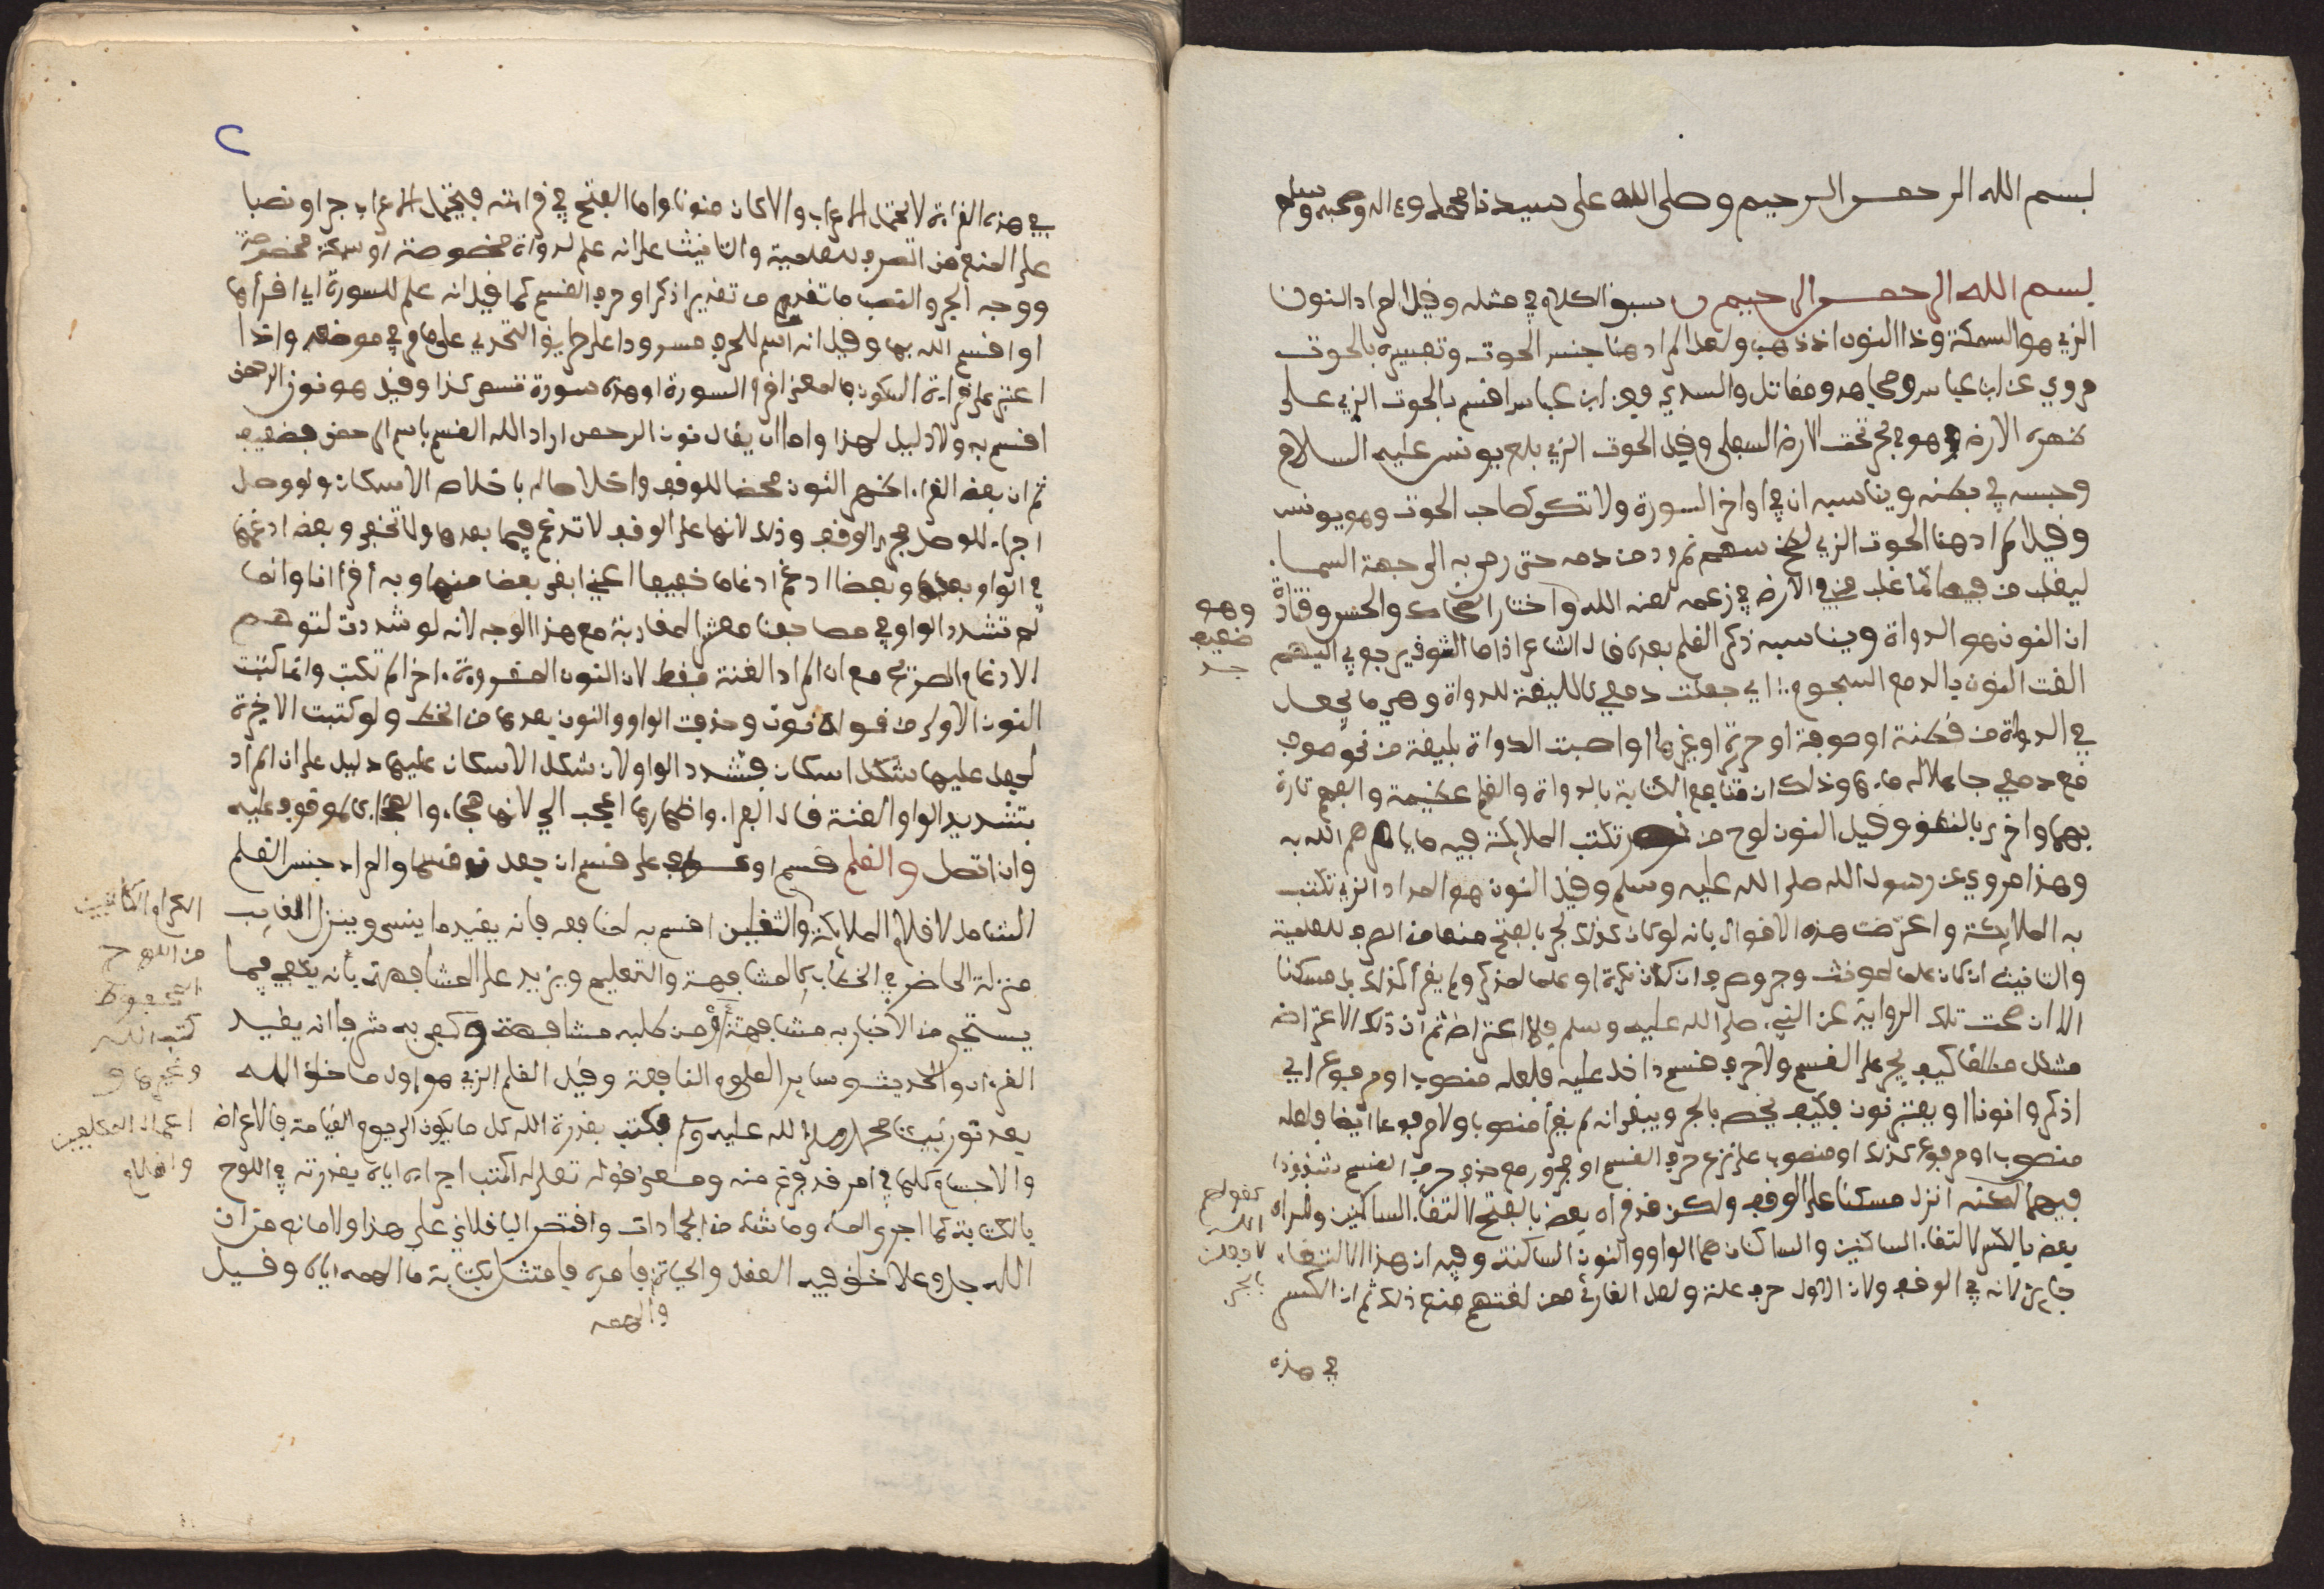 بسم الله الرحمن الرحيم وصلى الله على سيدنا محمد وءاله وصحبه وسلم
بسم الله الرحمن الرحيم ن سبق الكلام في مثله وقيل المراد النون
الذي هو السمكة وذا النون اذ ذهب ولعل المراد هنا جنس الحوت وتفسيره بالحوت
مروي عن ابن عباس ومجاهد ومقاتل والسدي وعن ابن عباس اقسم بالحوت الذي على
ظهره الارض وهو في بحر تحت الارض السفلى وقيل الحوت الذي بلع يونس عليه السلام
وحبسه في بطنه ويناسبه ان في اواخر السورة ولا تكن كصاحب الحوت وهو يونس
وقيل المراد هنا الحوت الذي لطخ سهم نمرود من دمه حتى رمى به الى جهة السما
ليغلب من فيها كما غلب من في الارض في زعمه لعنه الله واختار الضحاك والحسن وقتادة
ان النون هو الدواة ويناسبه ذكر القلم بعده قال الشاعر اذا ما الشوق يرجع بي اليهم
القت النون بالدمع السجوم اي جعلت دمعي كالليقة للدواة وهي ما يجعل
في الدواة من قطنة او صوفة او حرير او غيرها او اصبت الدواة بليقة من نحو صوف
مع دمعي جاعلا له ماءها وذلك ان منافع الكتابة بالدواة والقلم عظيمة والفهم تارة
بهما واخرى بالنطق وقيل النون لوح من نور تكتب الملائكة فيه ما يامرهم الله به
وهذا مروي عن رسول الله صلى الله عليه وسلم وقيل النون هو المداد الذي تكتب
به الملايكة واعترضت هذه الاقوال بانه لو كان كذلك لجر بالفتح منعا من الصرف للعلمية
والتانيث ان كان علما لمونث وجر وصرف ان كان نكرة او علما لمذكر ولم يقرأ كذلك بل مسكنا
الا ان صحت تلك الرواية عن النبي صلى الله عليه وسلم فلا اعتراض ثم ان ذلك الاعتراض
مشكل مطلقا كيف يجر على القسم ولا حرف قسم داخل عليه فلعله منصوب او مرفوع اي
اذكر وانونا او يعتبر نون فكيف يخص بالجر ويبقى انه لم يقرأ منصوبا ولا مرفوعا ايضا فلعله
منصوب او مرفوع كذلك او منصوب على نزع حرف القسم او مجرور مع حذف حرف القسم شذوذا
فيهما لكنه انزل مسكنا على الوقف ولكن قد قراه بعض بالفتح لالتقاء الساكنين وقراه
بعض بالكسر لالتقاء الساكنين والساكنان هما الواو والنون الساكنة وفيه ان هذا الالتقاء
جايز لانه في الوقف ولان الاول حرف علة ولعل القارئ ممن لغتهم منع ذلك ثم ان الكسر
في هذه
وهو
ضعيف
جدا
كقولهم
الله
لافعلن
بالجر
في هذه القراءة لا يحتمل الاعراب والا لكان منونا واما الفتح في قراءته فيحتمل الاعراب جرا ونصبا
على المنع من الصرف للعلمية والتانيث على انه علم لدواة مخصوصة او سمكة مخصوصة
ووجه الجر والنصب ما تقدم من تقدير اذكر او حرف القسم كما قيل انه علم للسورة اي اقرأها
او اقسم الله بها وقيل انه اسم للحرف مسرودا على طريق التحدي على ما مر في موضعه واذا
اعتبر على قراءة السكون فالمعنى اقرء السورة او هذه سورة تسمى كذا وقيل هو نون الرحمن
اقسم به ولا دليل لهذا واما ان يقال نون الرحمن اراد الله القسم باسم الرحمن فضعيف
ثم ان بعض القراء اظهر النون محضا للوقف واخلاصا له باخلاص الاسكان ولو وصل
اجراء للوصل مجرى الوقف وذلك لانها على الوقف لا تدغم فيما بعدها ولا تخفى وبعض ادغمها
في الواو بعدها وبعضا ادغم ادغاما خفيفا اعني ابقى بعضا منها وبه أقرأ انا وانما
لم تشدد الواو في مصاحفنا معشر المغاربة مع هذا الوجه لانه لو شددت لتوهم
الادغام الصريح مع ان المراد الغنة فقط لان النون المقروءة اخرا لم تكتب وانما كتبت
النون الاولى من قولك نون وحذفت الواو والنون بعدها من الخط ولو كتبت الاخيرة
لجعل عليها شكل اسكان فتشدد الواو لان شكل الاسكان عليها دليل على ان المراد
بتشديد الواو الغنة قال الفراء واظهارها اعجب الي لانها هجاء والهجاء كالموقوف عليه
وان اتصل والقلم قسم او عطف على قسم ان جعل نون قسما والمراد جنس القلم
الشامل لاقلام الملايكة والثقلين اقسم به لمنافعه فانه يقيد ما ينسى وينزل الغايب
منزلة الحاضر في الخطاب كالمشافهة والتعليم ويزيد على المشافهة بأنه يكفي فيما
يستحي من الاخبار به مشافهة او من طلبه مشافهة وكفى به شرفا انه يقيد
القرءان والحديث وساير العلوم النافعة وقيل القلم الذي هو اول ما خلق الله
بعد نور نبينا محمد صلى الله عليه وسلم فكتب بقدرة الله كل ما يكون الى يوم القيامة فالاعراض
والاجسام كلها في امر قد فرغ منه ومعنى قوله تعلى له اكتب اجراءه اياه بقدرته في اللوح
بالكتابة كما اجرى الماء وما شاء من الجمادات واقتصر الباقلاني على هذا ولا مانع من ان
الله جل وعلا خلق فيه العقل والحياة فامره فامتثل بكتابة ما الهمه اياه وقيل
والهمه
الكرام الكاتبين
من اللوح
المحفوظ
كتب الله
وغيرها و
اعمال المكلفين
واقلام